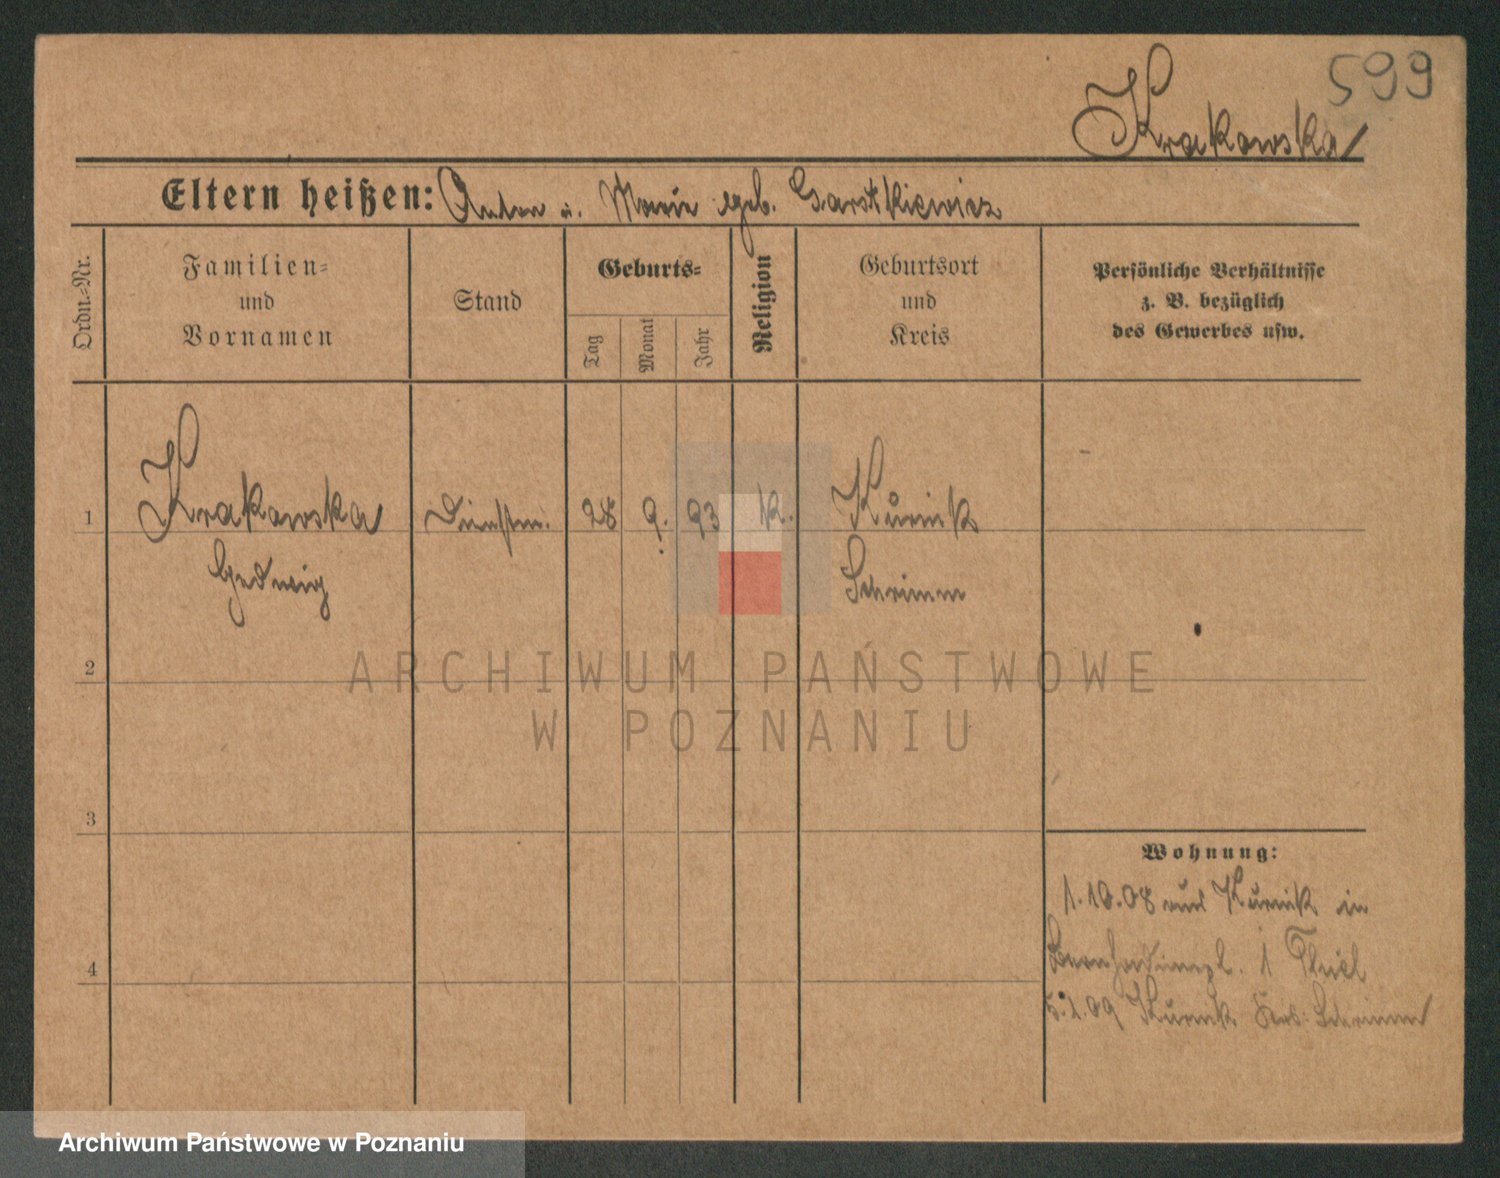 599
Krakowska
Eltern heißen: Anton u. Marie geb. Garstkiewicz
Ordn.-Nr.
Familien-
und
Vornamen
Stand
Geburts-
Tag
Monat
Jahr
Religion
Geburtsort
und
Kreis
Persönliche Verhältnisse
z. B. bezüglich
des Gewerbes usw.
1
Krakowska
Hedwig
Dienstm.
28
9.
93
K.
Kurnik
Schrimm
2
3
4
Wohnung:
1.10.08 aus Kurnik in
Bernhardinerpl. 1 Thiel
5.1.09 Kurnik Krs. Schrimm
ARCHIWUM PAŃSTWOWE
W POZNANIU
Archiwum Państwowe w Poznaniu